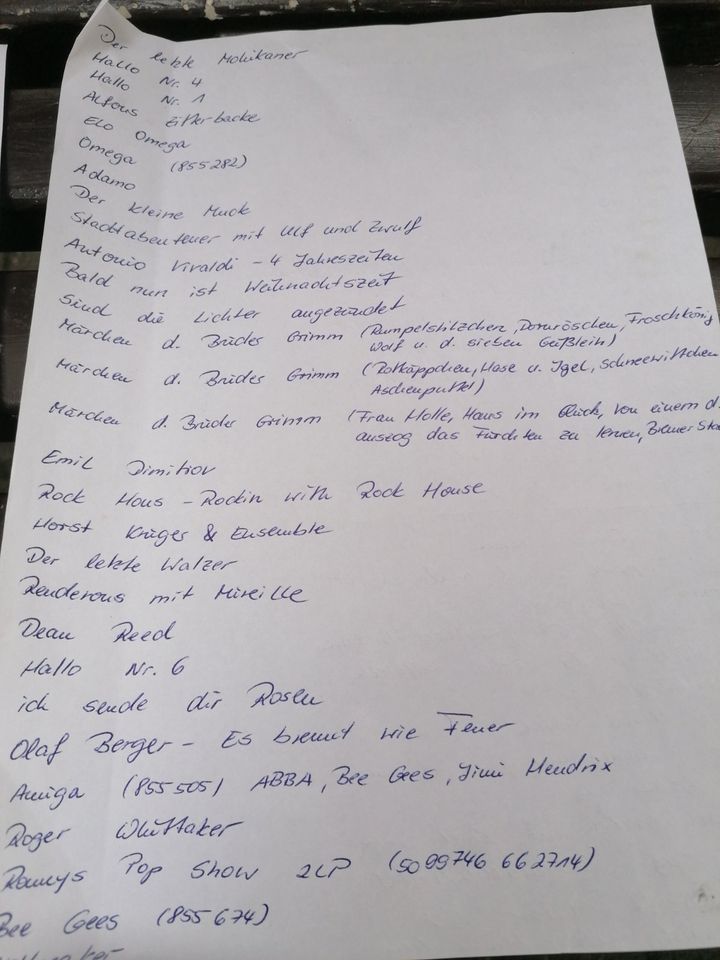 Der letzte Mohikaner
Hallo Nr. 4
Hallo Nr. 1
Alfons Zitterbacke
Elo Omega
Omega (855282)
Adamo
Der kleine Muck
Stadtabenteuer mit Ulf und Zwulf
Antonio Vivaldi - 4 Jahreszeiten
Bald nun ist Weihnachtszeit
Sind die Lichter angezündet
Märchen d. Brüder Grimm (Rumpelstilzchen, Dornröschen, Froschkönig
Wolf u. d. sieben Geißlein)
Märchen d. Brüder Grimm (Rotkäppchen, Hase u. Igel, Schneewittchen
Aschenputtel)
Märchen d. Brüder Grimm (Frau Holle, Hans im Glück, Von einem d.
auszog das Fürchten zu lernen, Bremer Sta
Emil Dimitrov
Rock Haus - Rockin with Rock House
Horst Krüger & Ensemble
Der letzte Walzer
Rendevous mit Mireille
Dean Reed
Hallo Nr. 6
ich sende dir Rosen
Olaf Berger - Es brennt wie Feuer
Amiga (855505) ABBA, Bee Gees, Jimi Hendrix
Roger Whittaker
Ronnys Pop Show 2LP (5099746 662714)
Bee Gees (855674)